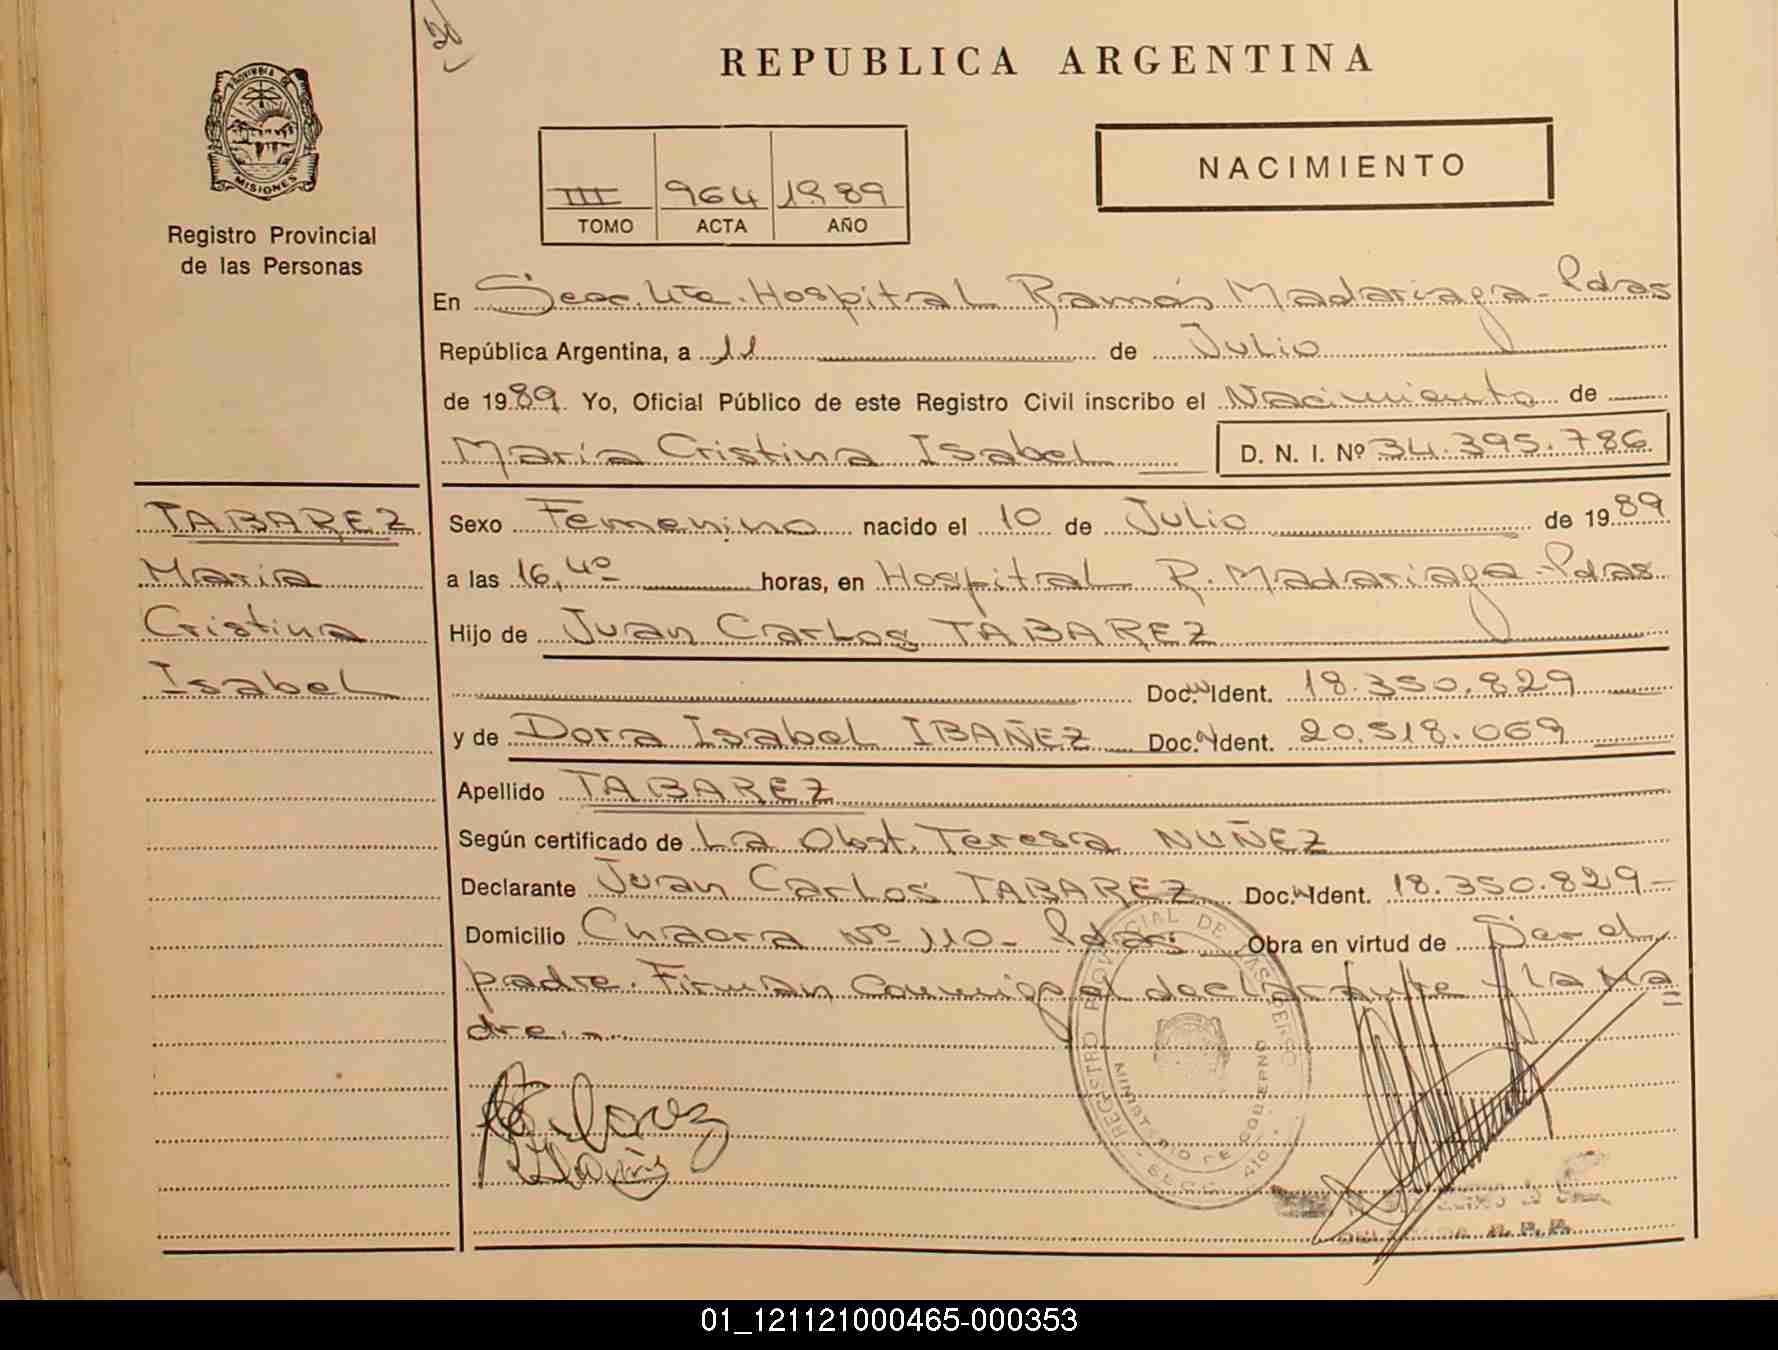 REPUBLICA ARGENTINA
PROVINCIA DE
MISIONES
Registro Provincial
de las Personas
NACIMIENTO
III 964 1989
TOMO ACTA AÑO
En Secc. Hospital Ramón Madariaga - Pdas
República Argentina, a 11 de Julio
de 1989. Yo, Oficial Público de este Registro Civil inscribo el Nacimiento de
María Cristina Isabel D. N. I. Nº 34.395.786
TABAREZ
María
Cristina
Isabel
Sexo Femenino nacido el 10 de Julio de 1989
a las 16,40 horas, en Hospital R. Madariaga - Pdas
Hijo de Juan Carlos TABAREZ
Doc. Ident. 18.350.829
y de Dora Isabel IBAÑEZ Doc. Ident. 20.518.069
Apellido TABAREZ
Según certificado de La Obst. Teresa NUÑEZ
Declarante Juan Carlos TABAREZ Doc. Ident. 18.350.829-
Domicilio Chacra Nº 110 - Pdas Obra en virtud de Ser el
padre. Firman conmigo el declarante y la Ma
dre
REGISTRO PROVINCIAL DE LAS PERSONAS
MINISTERIO DE GOBIERNO
01_121121000465-000353